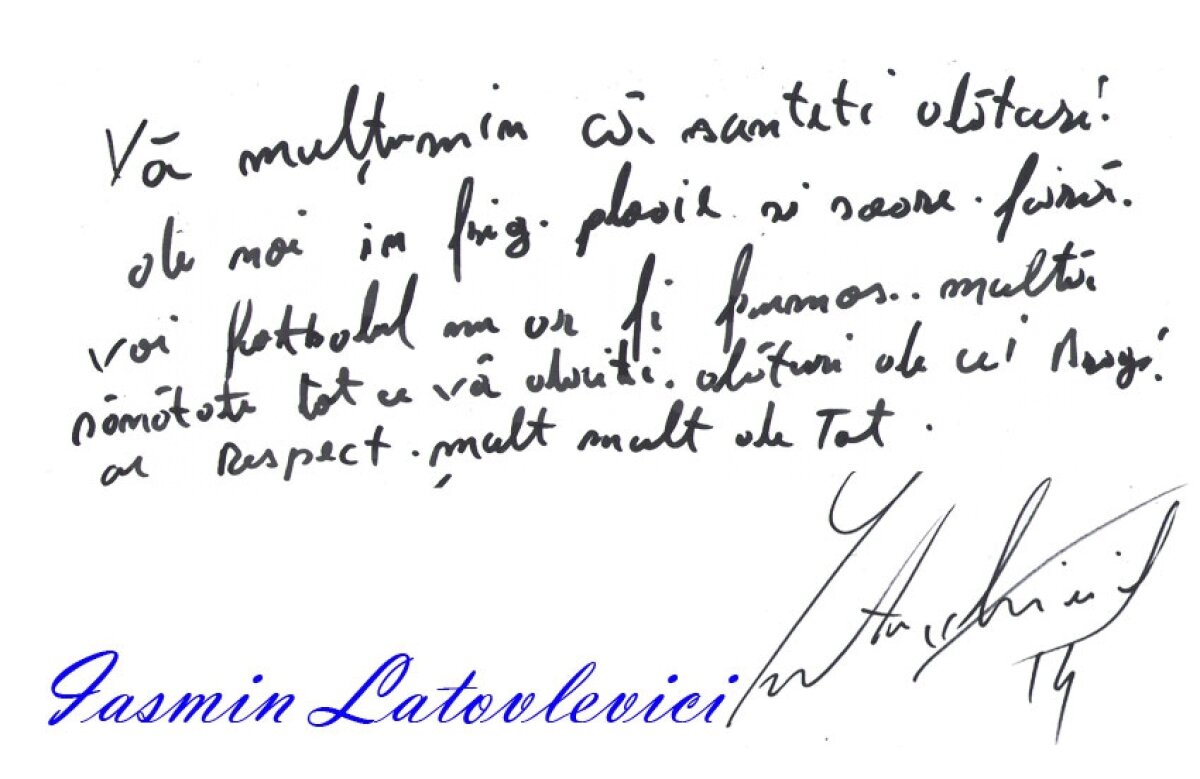 Vă mulțumin că santeti alături
de noi in frig. ploaie si soare. fără.
voi fotbolul nu ar fi frumos.. multă
sănătate tot ce vă doriti. alături de cei dragi!
cu Respect. mult mult de Tot.
14
Iasmin Latovlevici